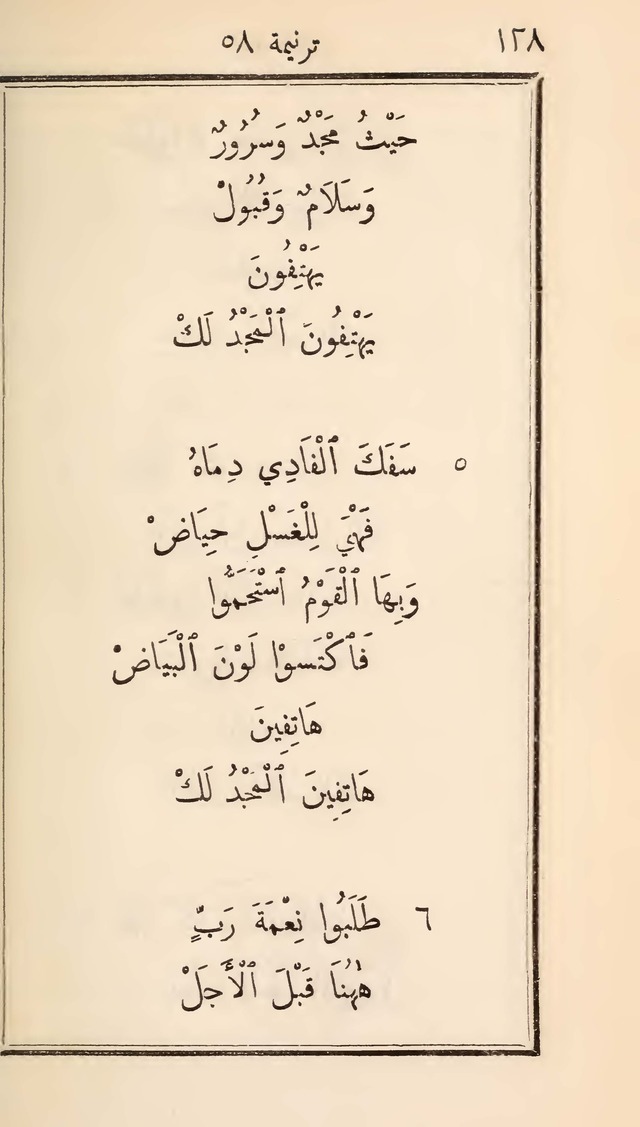 ١٢٨ ترنيمة ٥٨
حَيْثُ مَجْدٌ وَسُرُورٌ
وَسَلَامٌ وَقُبُولْ
يَهْتِفُونَ
يَهْتِفُونَ ٱلْمَجْدُ لَكْ
٥ سَفَكَ ٱلْفَادِي دِمَاهُ
فَهْيَ لِلْغَسْلِ حِيَاضْ
وَبِهَا ٱلْقَوْمُ ٱسْتَحَمُّوا
فَٱكْتَسوْا لَوْنَ ٱلْبَيَاضْ
هَاتِفِينَ
هَاتِفِينَ ٱلْمَجْدُ لَكْ
٦ طَلَبُوا نِعْمَةَ رَبٍّ
هٰهُنَا قَبْلَ ٱلْأَجَلْ